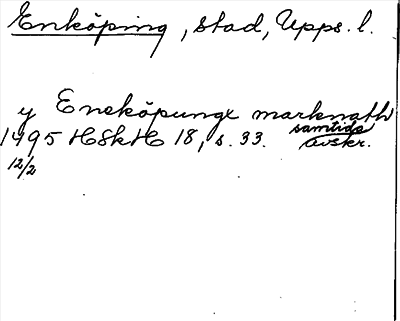 Enköping, stad, Upps. l.
y Eneköpunge marknath
1495 HSkH 18, s. 33. samtida avskr.
12/2